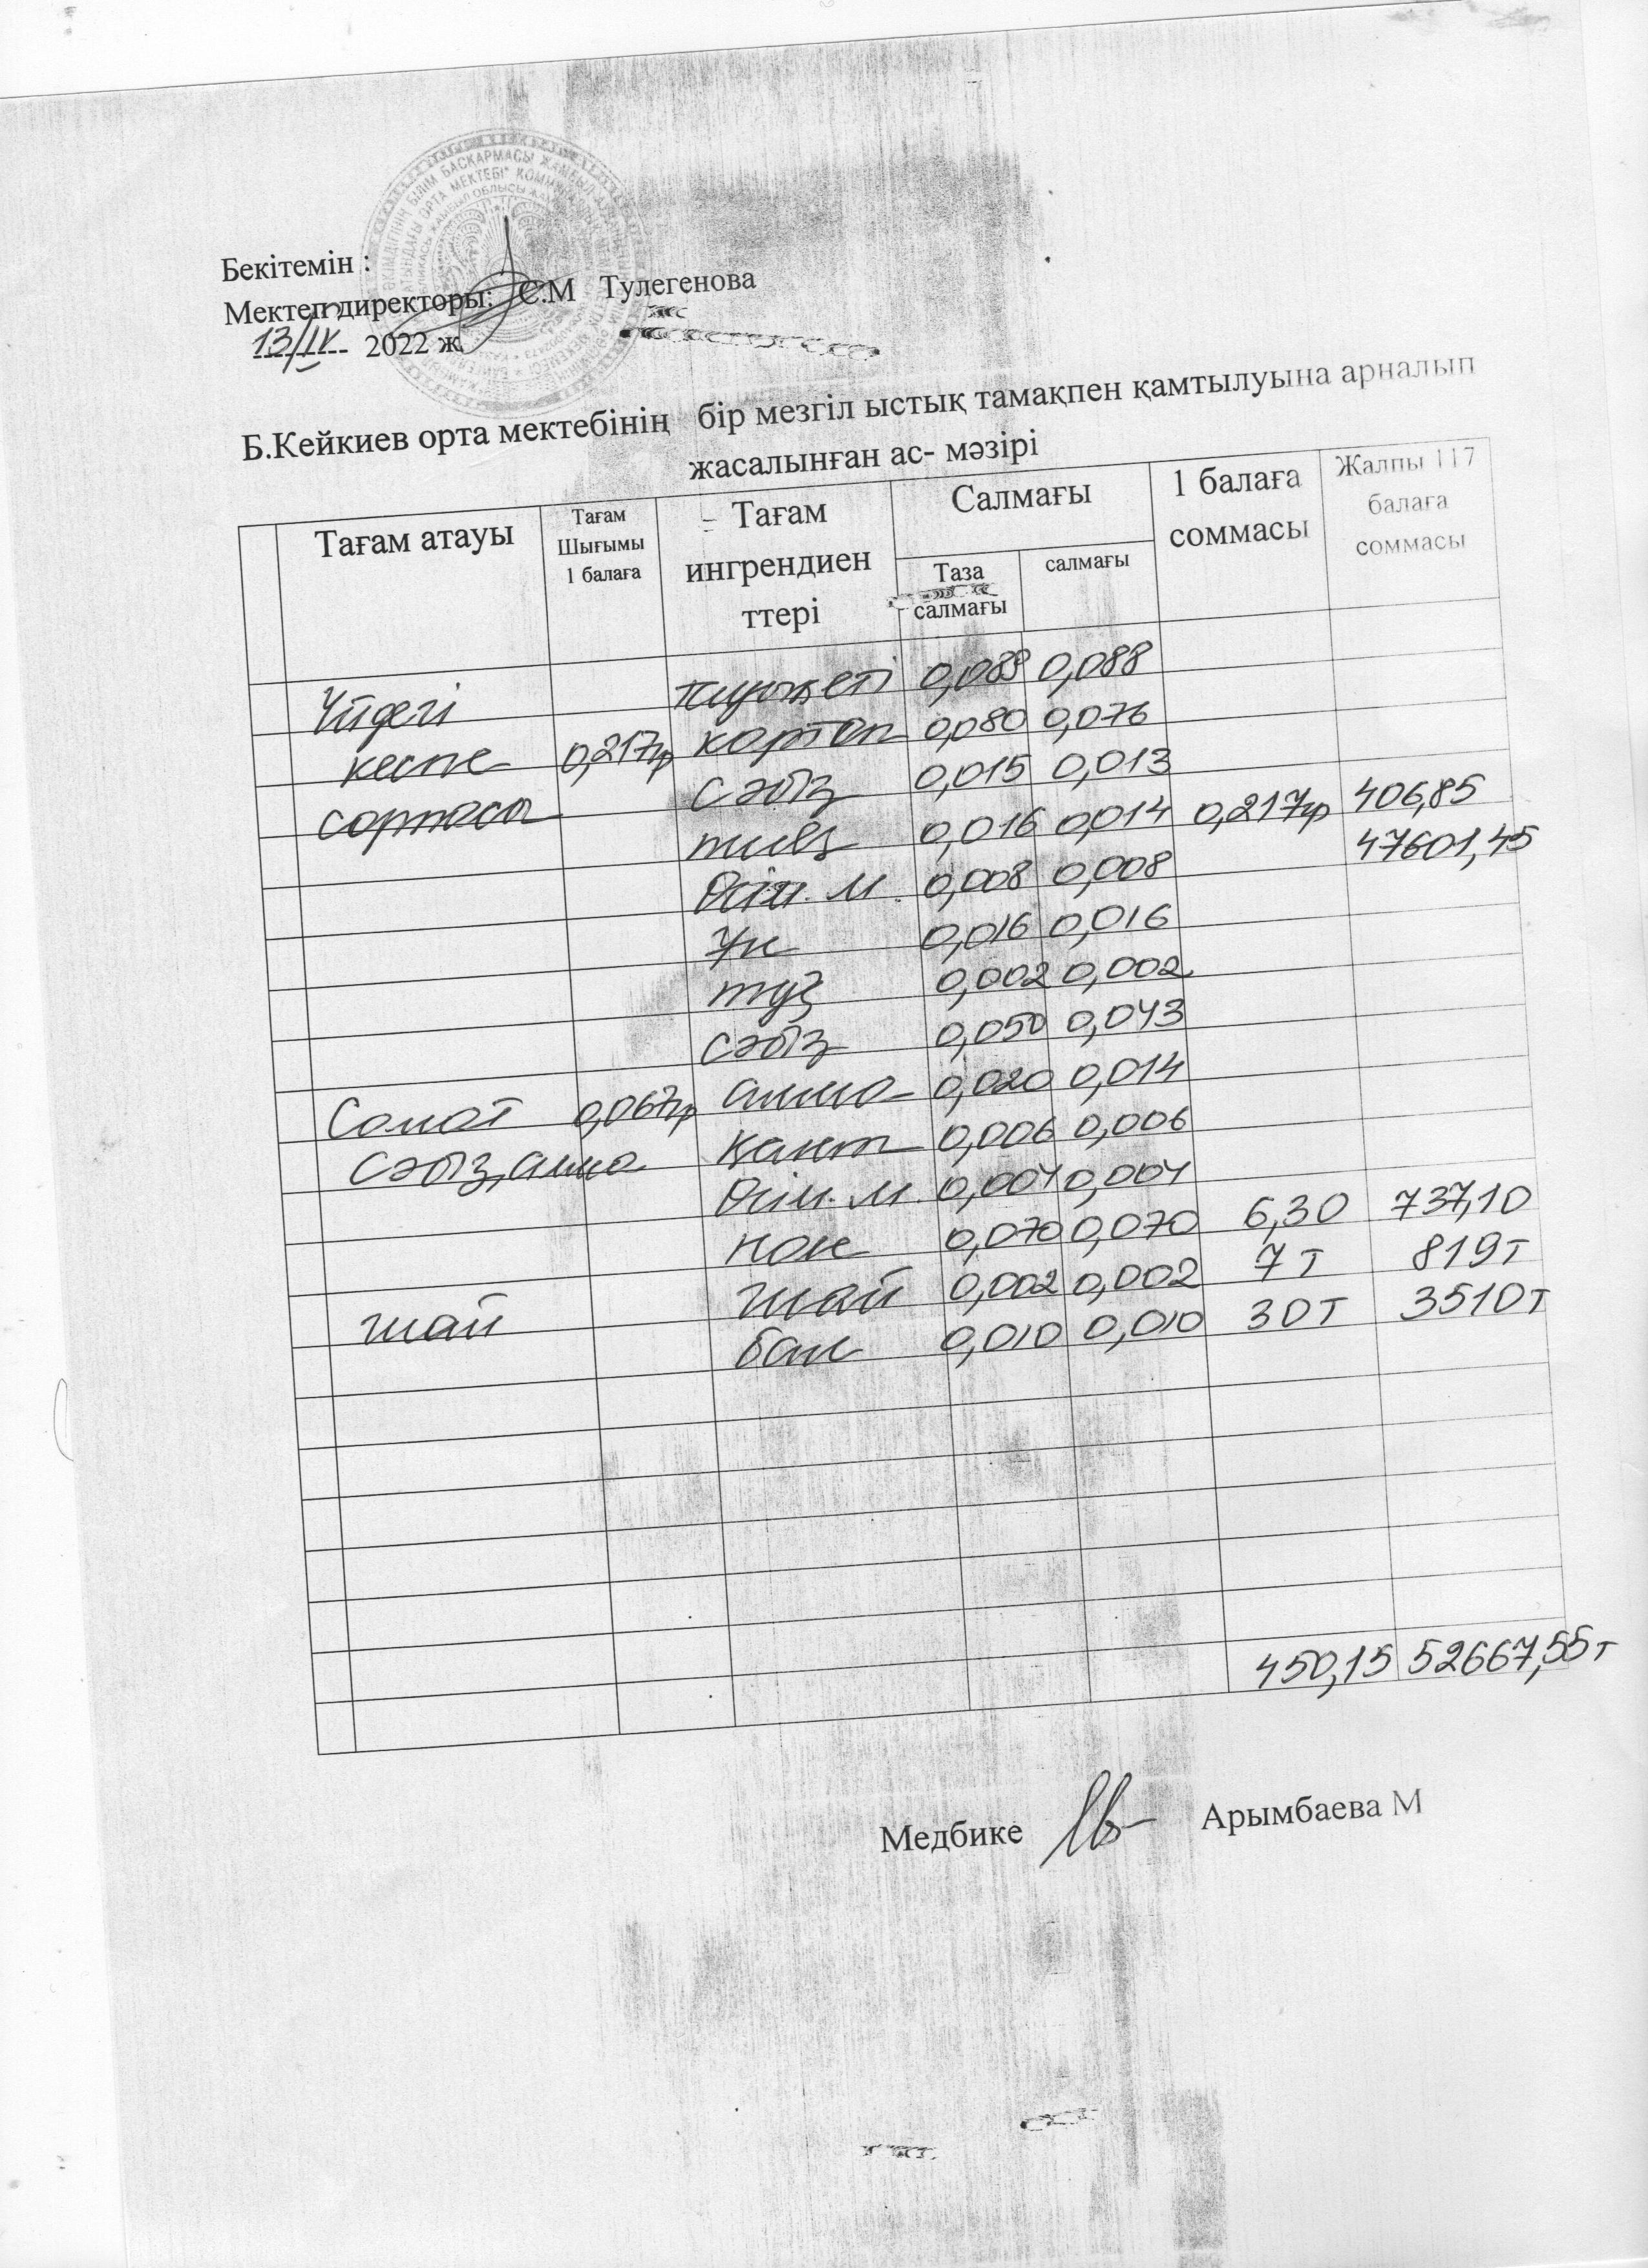 Бекітемін :
Мектеп директоры: С.М Тулегенова
13/IV 2022 ж
Б.Кейкиев орта мектебінің бір мезгіл ыстық тамақпен қамтылуына арналып
жасалынған ас- мәзірі
Тағам атауы Тағам Шығымы 1 балаға Тағам ингрендиен ттері Салмағы 1 балаға соммасы Жалпы 117 балаға соммасы
Таза салмағы салмағы
Үйдегі 0,088
кеспе 0,217гр картоп 0,080 0,076
сорпасы сәбіз 0,015 0,013
пияз 0,016 0,014 0,217гр 406,85
Өсім. м. 0,008 0,008 47601,45
Ұн 0,016 0,016
тұз 0,002 0,002
сәбіз 0,050 0,043
Салат 0,067гр алма 0,020 0,014
сәбіз, алма қант 0,006 0,006
Өсім. м. 0,004 0,004
нан 0,070 0,070 6,30 737,10
шай шай 0,002 0,002 7 т 819т
0,010 0,010 30т 3510т
450,15 52667,55т
Медбике Арымбаева М